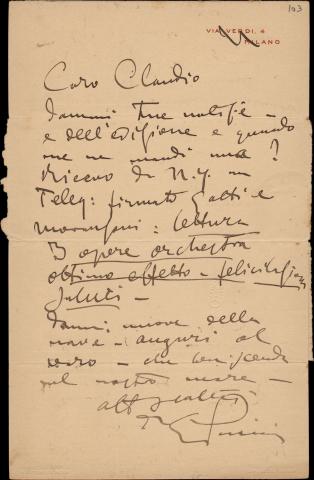 103
VIA VERDI, 4
MILANO
Caro Claudio
dammi tue notizie –
e dell'edizione e quando
me ne mandi una?
Ricevo da N.Y. un
Teleg: firmato Gatti e
Moranzoni: lettura
3 opere orchestra
ottimo effetto – felicitazioni
Saluti –
Dammi nuove della
nave – auguri al
varo – che ben scenda
nel nostro mare –
aff saluti